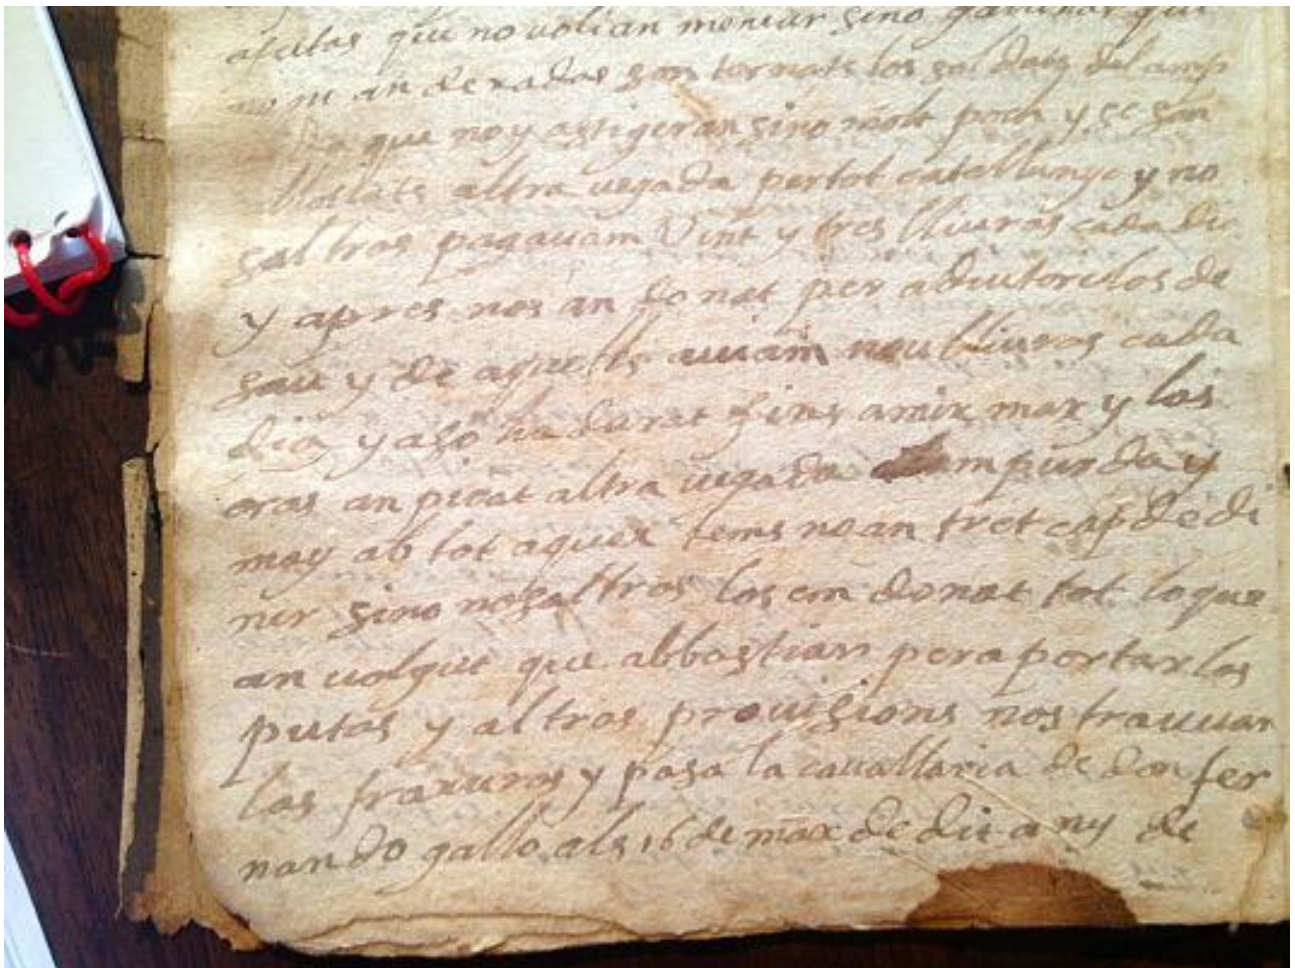 que no volian meniar sino gallinas que
son tornats los soldats del camp
que noy astigeran sino molt poch y se son
altra vegada per tot catallunya y no
saltros pagavam vint y tres lliuras cada dia
y apres nos an donat per adiutori los de
sau y de aquells aviam nou lliuras cada
dia y aso ha durat fins a mix mars y los
oras an picat altra vegada ampurda y
may ab tot aquex tems no an tret cap de di
ner sino nosaltros los em donat tot lo que
an volgut que abbastian per aportar los
putas y altros provisions nos travuan
las fraxuras y pasa la cavallaria de don fer
nando gallo als 16 de mars de dit any de